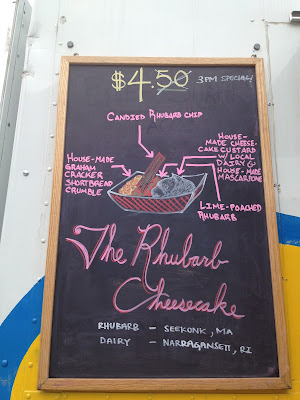 $4.50 3PM SPECIAL!
CANDIED RHUBARB CHIP
HOUSE-MADE
GRAHAM
CRACKER
SHORTBREAD
CRUMBLE
HOUSE-
MADE CHEESE-
CAKE CUSTARD
W/ LOCAL
DAIRY &
HOUSE-MADE
MASCARPONE
LIME-POACHED
RHUBARB
The Rhubarb
Cheesecake
RHUBARB - SEEKONK, MA
DAIRY - NARRAGANSETT, RI